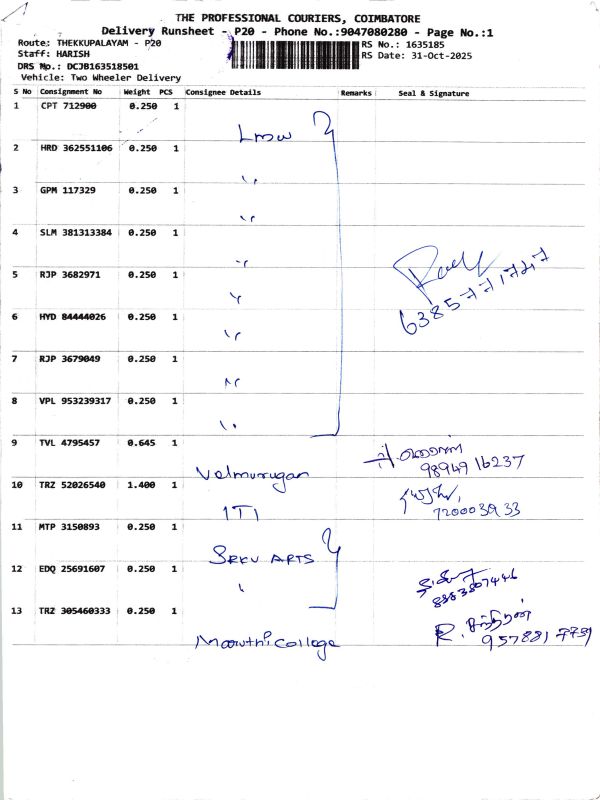 THE PROFESSIONAL COURIERS, COIMBATORE
Delivery Runsheet - P20 - Phone No.:9047080280 - Page No.:1
Route: THEKKUPALAYAM - P20
RS No.: 1635185
Staff: HARISH
RS Date: 31-Oct-2025
DRS No.: DCJB163518501
Vehicle: Two Wheeler Delivery
S No Consignment No Weight PCS Consignee Details Remarks Seal & Signature
1 CPT 712900 0.250 1 Lmw
2 HRD 362551106 0.250 1 "
3 GPM 117329 0.250 1 "
4 SLM 381313384 0.250 1 "
5 RJP 3682971 0.250 1 "
6385771747
6 HYD 84444026 0.250 1 "
7 RJP 3679049 0.250 1 "
8 VPL 953239317 0.250 1 "
9 TVL 4795457 0.645 1 Velmurugan
9894916237
10 TRZ 52026540 1.400 1 ITI
7200003933
11 MTP 3150893 0.250 1 SRKV ARTS
12 EDQ 25691607 0.250 1 "
8883807446
13 TRZ 305460333 0.250 1 Maruthi College
R.
9578817739